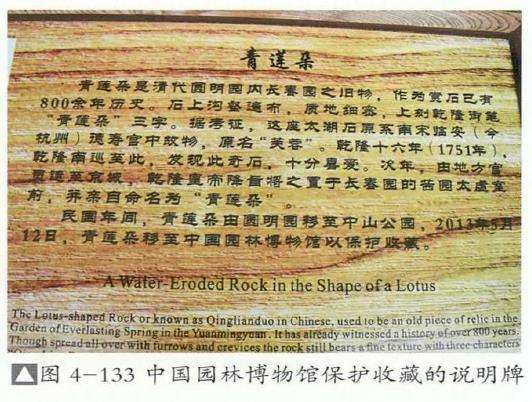 青莲朵
青莲朵是清代圆明园内长春园之旧物，作为赏石已有
800余年历史。石上沟壑遍布，质地细密，上刻乾隆御笔
“青莲朵”三字。据考证，这座太湖石原系南宋临安（今
杭州）德寿宫中故物，原名“芙蓉”。乾隆十六年（1751年），
乾隆南巡至此，发现此奇石，十分喜爱。次年，由地方官
运至京城，乾隆皇帝降旨将之置于长春园的茜园太虚室
前，并亲自命名为“青莲朵”。
民国年间，青莲朵由圆明园移至中山公园，2013年5月
12日，青莲朵移至中国园林博物馆以保护收藏。
A Water-Eroded Rock in the Shape of a Lotus
The Lotus-shaped Rock or known as Qinglianduo in Chinese, used to be an old piece of relic in the
Garden of Everlasting Spring in the Yuanmingyuan. It has already witnessed a history of over 800 years.
Though spread all over with furrows and crevices the rock still bears a fine texture with three characters
▲图 4-133 中国园林博物馆保护收藏的说明牌